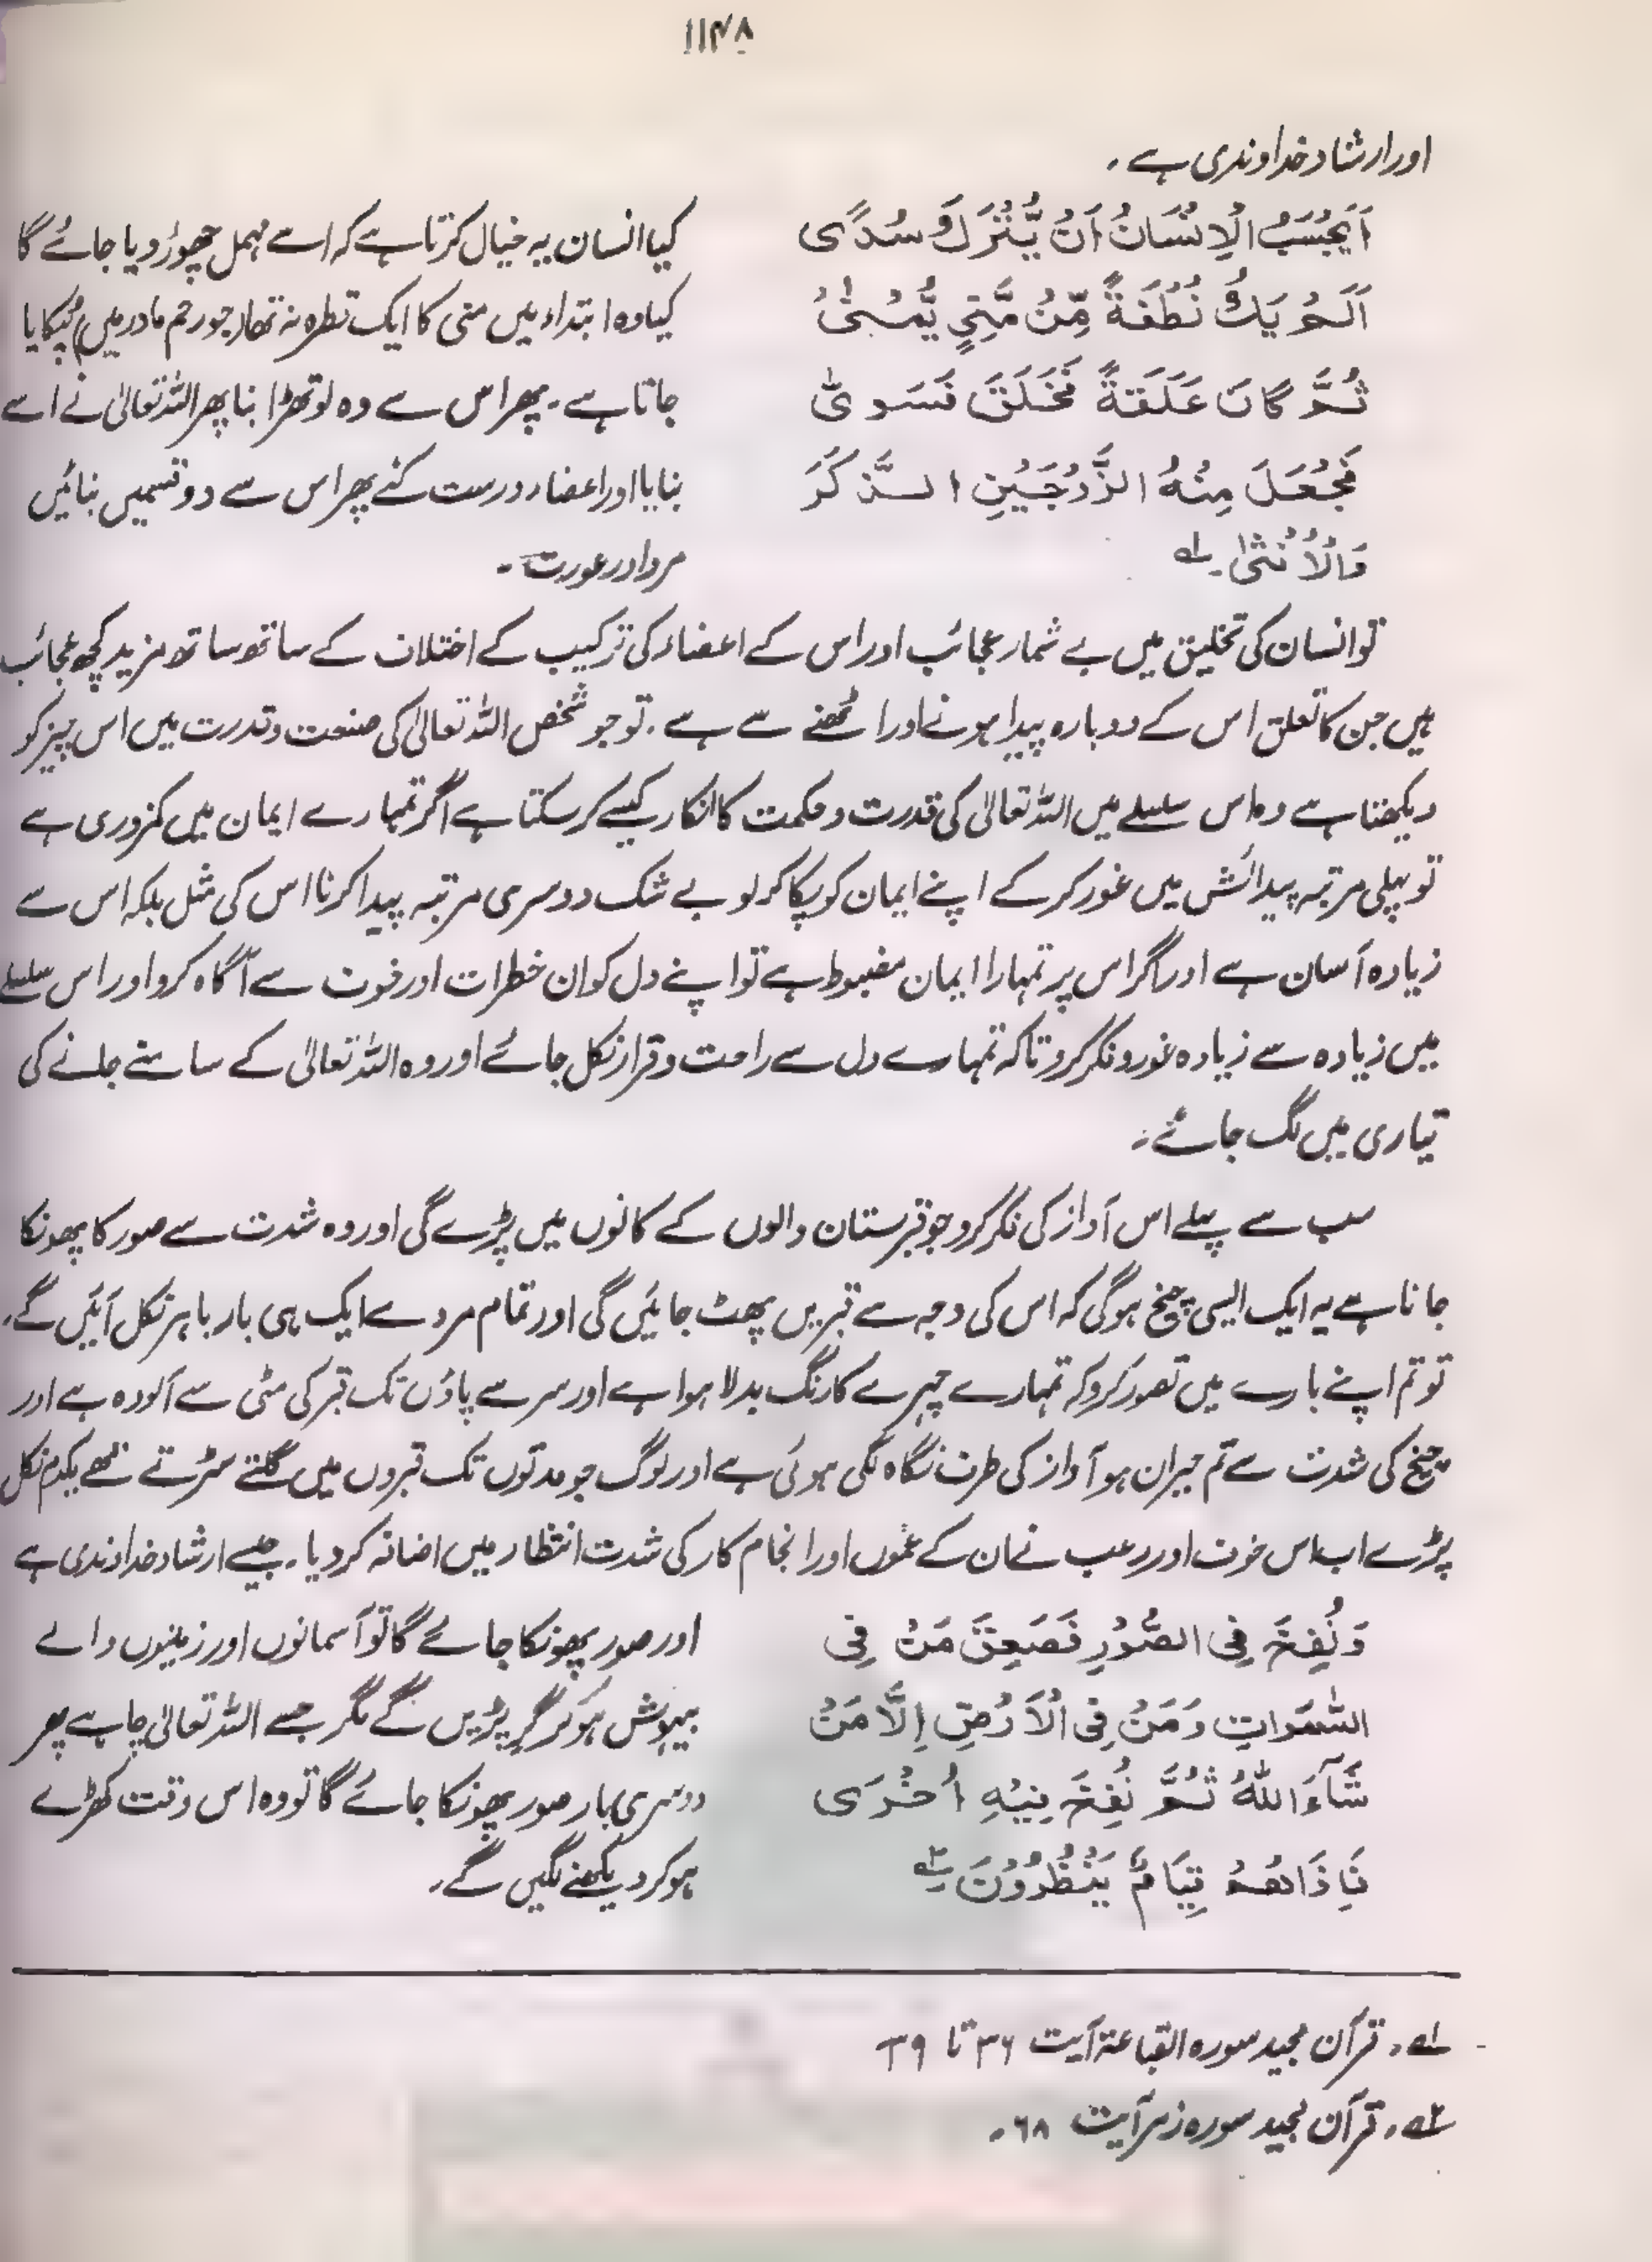 ۱۱۴۸
اور ارشاد خداوندی ہے۔
اَيَحْسَبُ الْاِنْسَانُ اَنْ يُّتْرَكَ سُدًى
اَلَمْ يَكُ نُطْفَةً مِّنْ مَّنِيٍّ يُّمْنٰى
ثُمَّ كَانَ عَلَقَةً فَخَلَقَ فَسَوّٰى
فَجَعَلَ مِنْهُ الزَّوْجَيْنِ الذَّكَرَ
وَالْاُنْثٰى۔ ۱؎
کیا انسان یہ خیال کرتا ہے کہ اسے مہمل چھوڑ دیا جائے گا
کیا وہ ابتداء میں منی کا ایک قطرہ نہ تھا (جو رحم مادر میں) ٹپکایا
جاتا ہے۔ پھر اس سے وہ لوتھڑا بنا پھر اللہ تعالیٰ نے اسے
بنایا اور اعضاء درست کئے پھر اس سے دو قسمیں بنائیں
مرد اور عورت۔
تو انسان کی تخلیق میں بے شمار عجائب اور اس کے اعضاء کی ترکیب کے اختلاف کے ساتھ ساتھ مزید کچھ عجائب
ہیں جن کا تعلق اس کے دوبارہ پیدا ہونے اور اٹھنے سے ہے۔ تو جو شخص اللہ تعالیٰ کی صنعت و قدرت میں اس چیز کو
دیکھتا ہے وہ اس سلسلے میں اللہ تعالیٰ کی قدرت و حکمت کا انکار کیسے کر سکتا ہے اگر تمہارے ایمان میں کمزوری ہے
تو پہلی مرتبہ پیدائش میں غور کر کے اپنے ایمان کو پکا کر لو بے شک دوسری مرتبہ پیدا کرنا اس کی مثل بلکہ اس سے
زیادہ آسان ہے اور اگر اس پر تمہارا ایمان مضبوط ہے تو اپنے دل کو ان خطرات اور خوف سے آگاہ کرو اور اس سلسلے
میں زیادہ سے زیادہ غور و فکر کرو تاکہ تمہارے دل سے راحت و قرار نکل جائے اور وہ اللہ تعالیٰ کے سامنے جانے کی
تیاری میں لگ جائے۔
سب سے پہلے اس آواز کی فکر کرو جو قبرستان والوں کے کانوں میں پڑے گی اور وہ شدت سے صور کا پھونکا
جانا ہے یہ ایک ایسی چیخ ہو گی کہ اس کی وجہ سے قبریں پھٹ جائیں گی اور تمام مردے ایک ہی بار باہر نکل آئیں گے۔
تو تم اپنے بارے میں تصور کرو کہ تمہارے چہرے کا رنگ بدلا ہوا ہے اور سر سے پاؤں تک قبر کی مٹی سے آلودہ ہے اور
چیخ کی شدت سے تم حیران ہو آواز کی طرف نگاہ لگی ہوئی ہے اور لوگ جو مدتوں تک قبروں میں گلتے سڑتے تھے یکدم نکل
پڑے اب اس خوف اور رعب نے ان کے غموں اور انجام کار کی شدت انتظار میں اضافہ کر دیا۔ جیسے ارشاد خداوندی ہے
وَنُفِخَ فِى الصُّوْرِ فَصَعِقَ مَنْ فِى
السَّمٰوَاتِ وَمَنْ فِى الْاَرْضِ اِلَّا مَنْ
شَآءَ اللّٰهُ ثُمَّ نُفِخَ فِيْهِ اُخْرَى
فَاِذَاهُمْ قِيَامٌ يَنْظُرُوْنَ۔ ۲؎
اور صور پھونکا جائے گا تو آسمانوں اور زمینوں والے
بیہوش ہو کر گر پڑیں گے مگر جسے اللہ تعالیٰ چاہے پھر
دوسری بار صور پھونکا جائے گا تو وہ اس وقت کھڑے
ہو کر دیکھنے لگیں گے۔
۱؎۔ قرآن مجید سورہ القیاعۃ آیت ۳۶ تا ۳۹
۲؎۔ قرآن مجید سورہ زمر آیت ۶۸۔